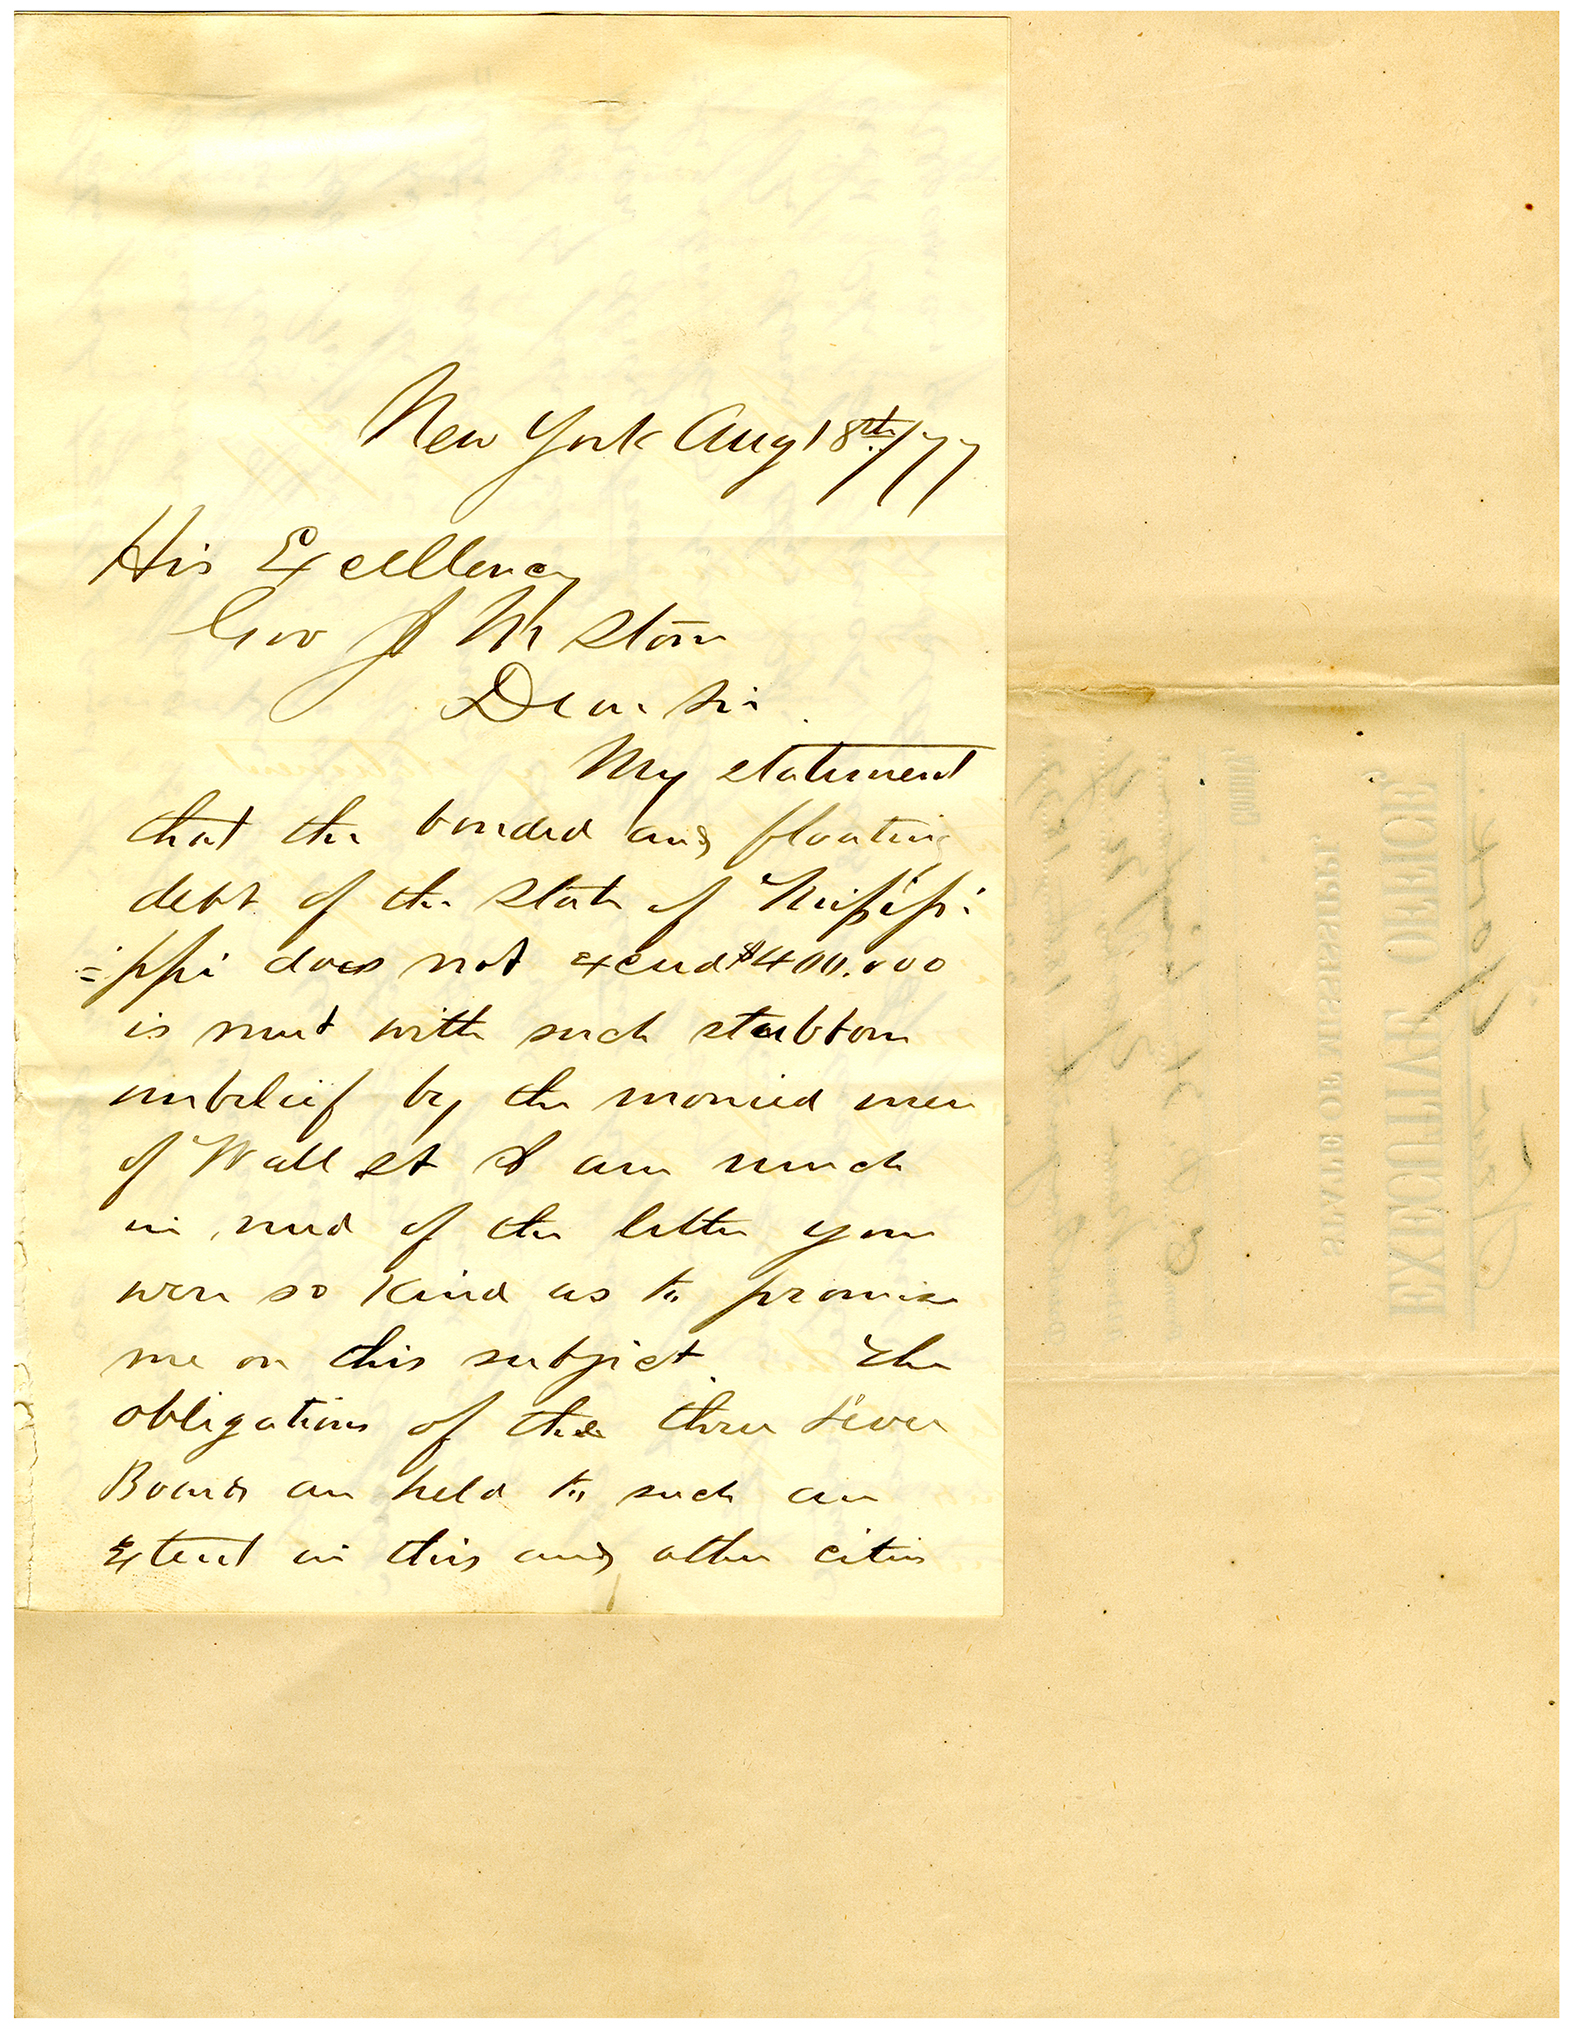 New York Aug 18th/77
His Excellency
Gov J M Stone
Dear Sir
My statement
that the bonded and floating
debt of the State of Missississi
=ippi does not exceed $400.000
is met with such stubborn
unbelief by the monied men
of Wall St I am much
in need of the letter you
were so kind as to promise
me on this subject. The
obligations of the three Levee
Boards are held to such an
Extent in this and other cities
EXECUTIVE OFFICE,
STATE OF MISSISSIPPI.
County,